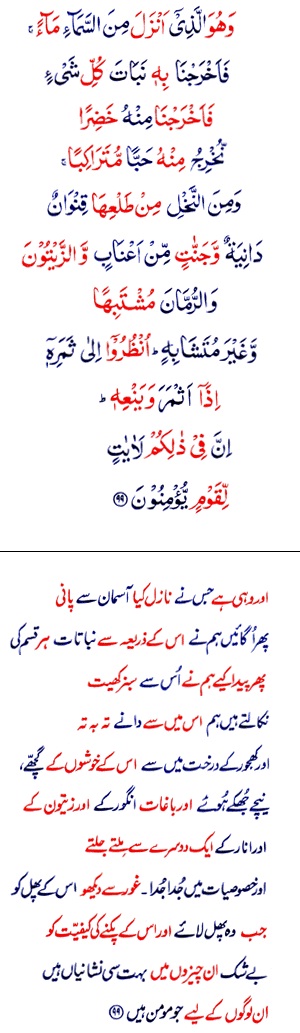 وَهُوَ الَّذِیْۤ اَنْزَلَ مِنَ السَّمَآءِ مَآءً ۚ
فَاَخْرَجْنَا بِهٖ نَبَاتَ كُلِّ شَیْءٍ
فَاَخْرَجْنَا مِنْهُ خَضِرًا
نُّخْرِجُ مِنْهُ حَبًّا مُّتَرَاكِبًا ۚ
وَمِنَ النَّخْلِ مِنْ طَلْعِهَا قِنْوَانٌ
دَانِیَةٌ وَّجَنّٰتٍ مِّنْ اَعْنَابٍ وَّالزَّیْتُوْنَ
وَالرُّمَّانَ مُشْتَبِهًا
وَّغَیْرَ مُتَشَابِهٍ ؕ اُنْظُرُوْۤا اِلٰی ثَمَرِهٖۤ
اِذَاۤ اَثْمَرَ وَیَنْعِهٖ ؕ
اِنَّ فِیْ ذٰلِكُمْ لَاٰیٰتٍ
لِّقَوْمٍ یُّؤْمِنُوْنَ ﴿۹۹﴾
اور وہی ہے جس نے نازل کیا آسمان سے پانی
پھر اُگائیں ہم نے اس کے ذریعہ سے نباتات ہر قسم کی
پھر پیدا کیے ہم نے اُس سے سبز کھیت
نکالتے ہیں ہم اس میں سے دانے تہ بہ تہ
اور کھجور کے درخت میں سے اس کے خوشوں کے گچھے،
نیچے جُھکے ہُوئے اور باغات انگور کے اور زیتون کے
اور انار کے ایک دوسرے سے مِلتے جلتے
اور خصوصیات میں جُدا جُدا۔ غور سے دیکھو اس کے پھل کو
جب وہ پھل لائے اور اس کے پکنے کی کیفیّت کو
بے شک ان چیزوں میں بہت سی نشانیاں ہیں
ان لوگوں کے لیے جو مومن ہیں ﴿۹۹﴾